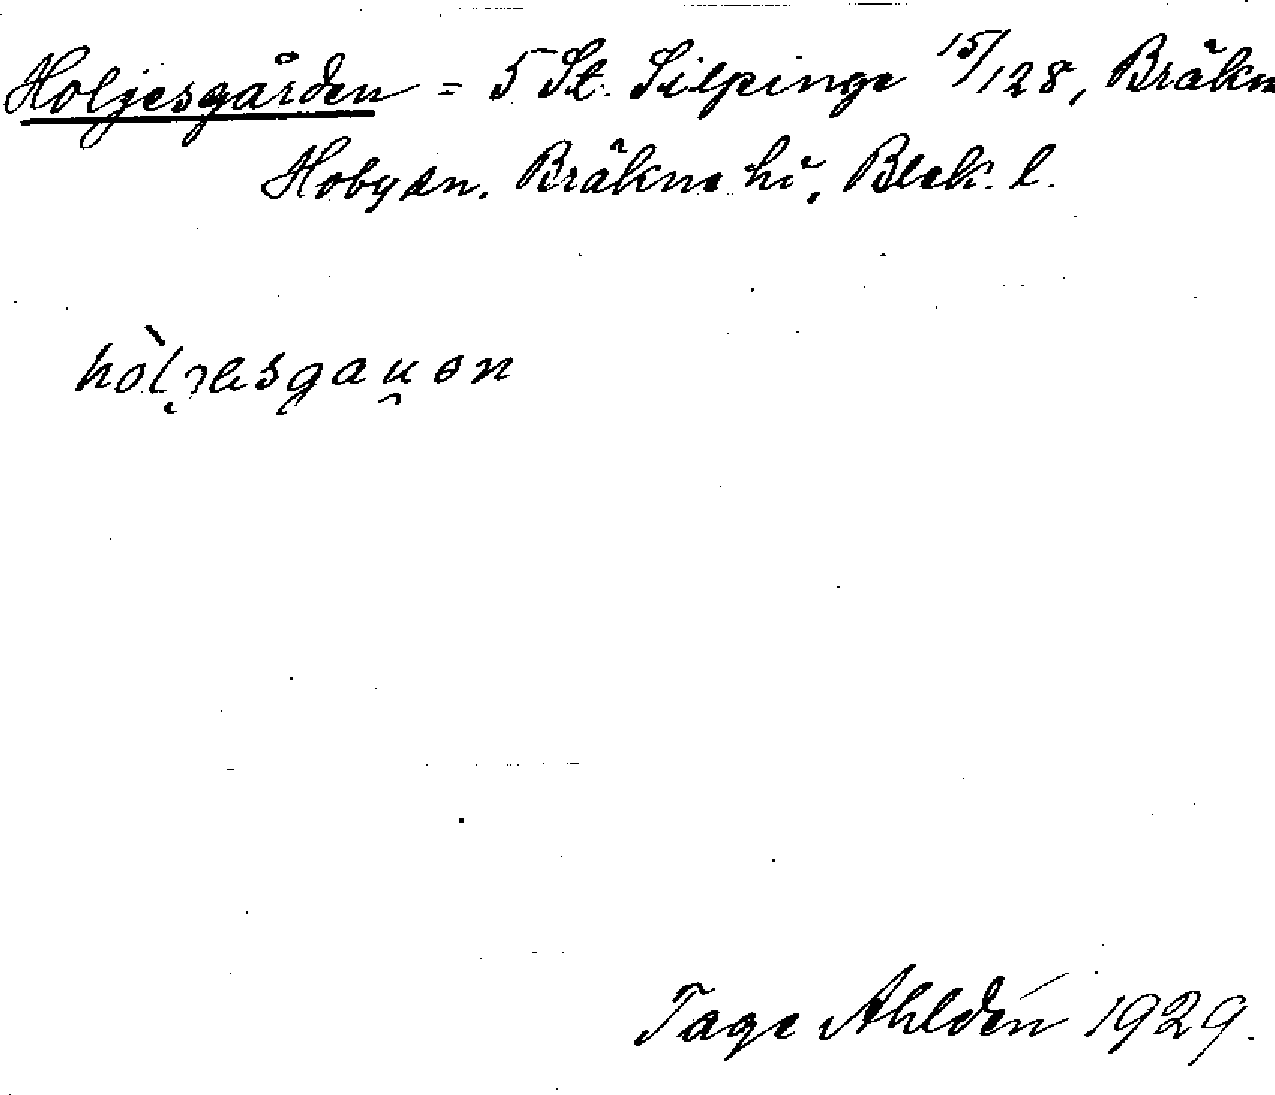 Holjesgården = 5 St. Silpinge 15/128, Bräkn
Hoby sn. Bräkne hd, Blek. l.
hòljesgauen
Tage Ahldén 1929.